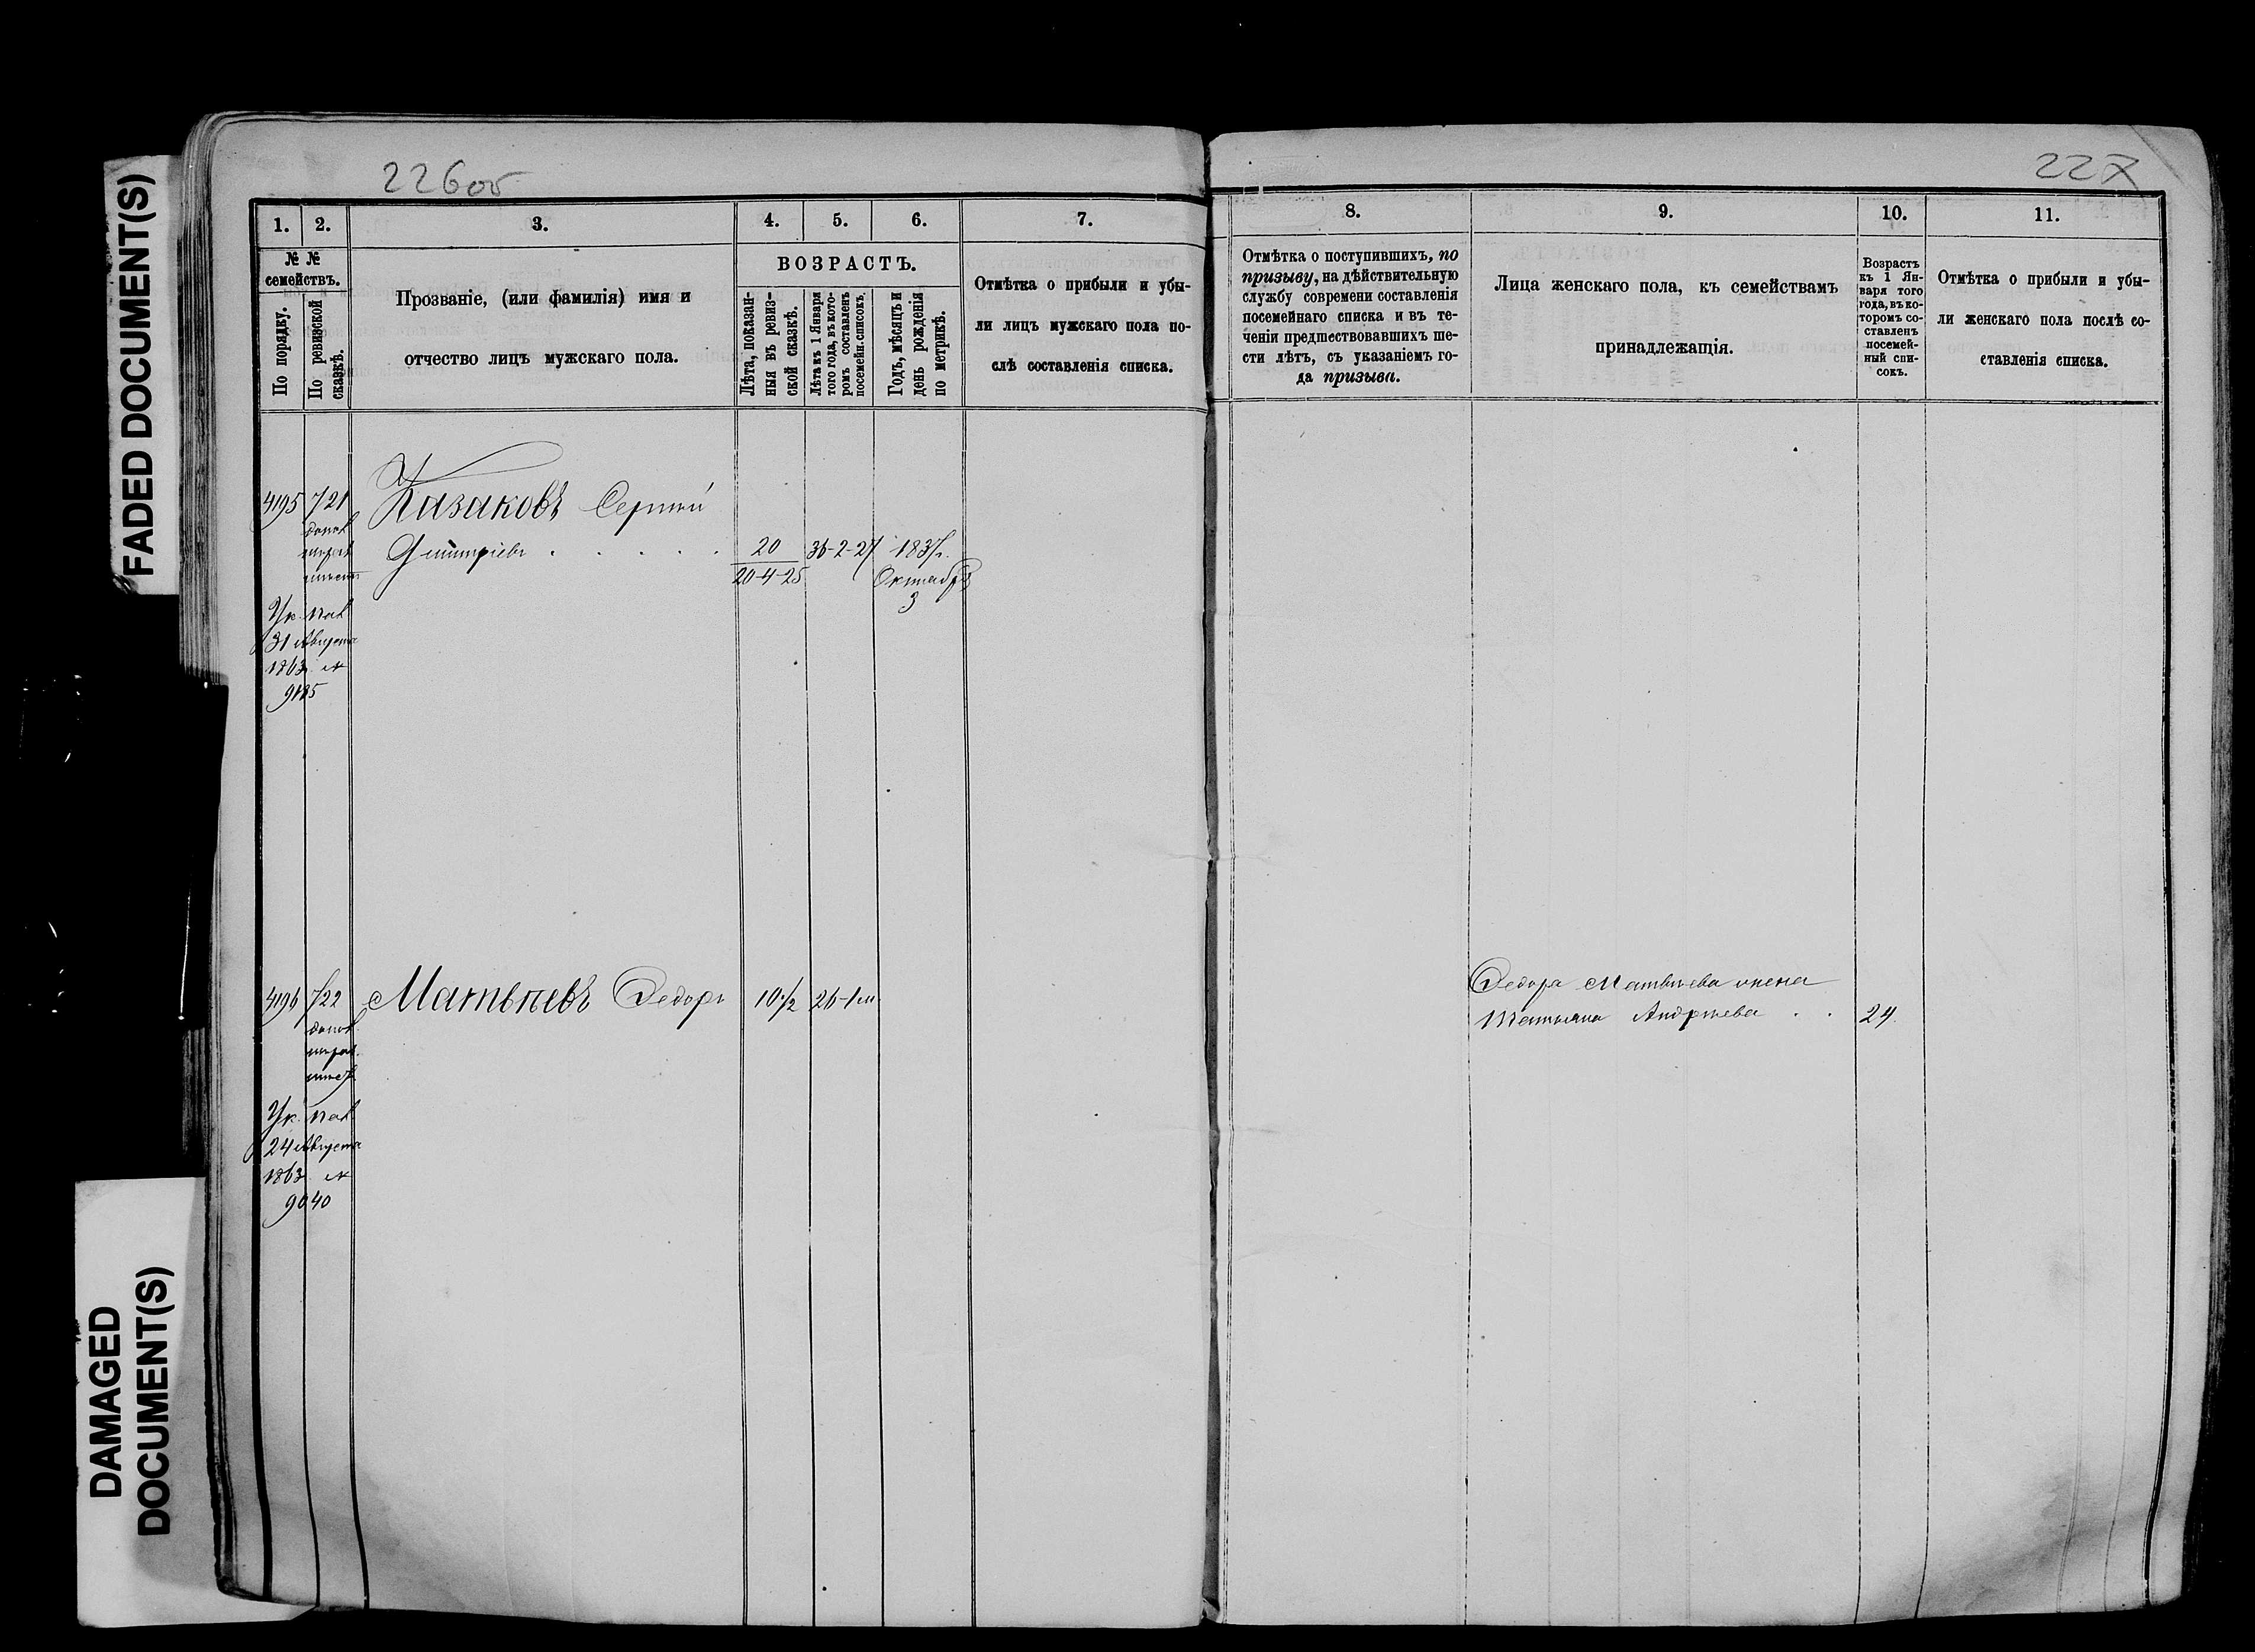 FADED DOCUMENT(S)
DAMAGED
DOCUMENT(S)
226об
227
1. 2. 3. 4. 5. 6. 7.
№ №
семействъ.
По порядку.
По ревизской
сказкѣ.
Прозваніе, (или фамилія) имя и
отчество лицъ мужскаго пола.
ВОЗРАСТЪ.
Лѣта, показан-
ныя въ ревиз-
ской сказкѣ.
Лѣта къ 1 Января
того года, въ кото-
ромъ составленъ
посемейн. списокъ.
Годъ, мѣсяцъ и
день рожденія
по метрикѣ.
Отмѣтка о прибыли и убы-
ли лицъ мужскаго пола по-
слѣ составленія списка.
4195 721 Казаковъ Сергѣй
допол
Дмитріевъ . . . . . 20 36-2-27 1837г.
20-4-25 Октября
3
Ук. пал
31 Августа
1863 №
9185
4196 722 Матвѣевъ Ѳедоръ 10 1/2 26-1 м
допол
Ук. пал
24 Августа
1863 №
9040
8. 9. 10. 11.
Отмѣтка о поступившихъ, по
призыву, на дѣйствительную
службу современи составленія
посемейнаго списка и въ те-
ченіи предшествовавшихъ ше-
сти лѣтъ, съ указаніемъ го-
да призыва.
Лица женскаго пола, къ семействамъ
принадлежащія.
Возрастъ
къ 1 Ян-
варя того
года, въ ко-
торомъ со-
ставленъ
посемей-
ный спи-
сокъ.
Отмѣтка о прибыли и убы-
ли женскаго пола послѣ со-
ставленія списка.
Ѳедора Матвѣева жена
Татьяна Андреева . . 24.